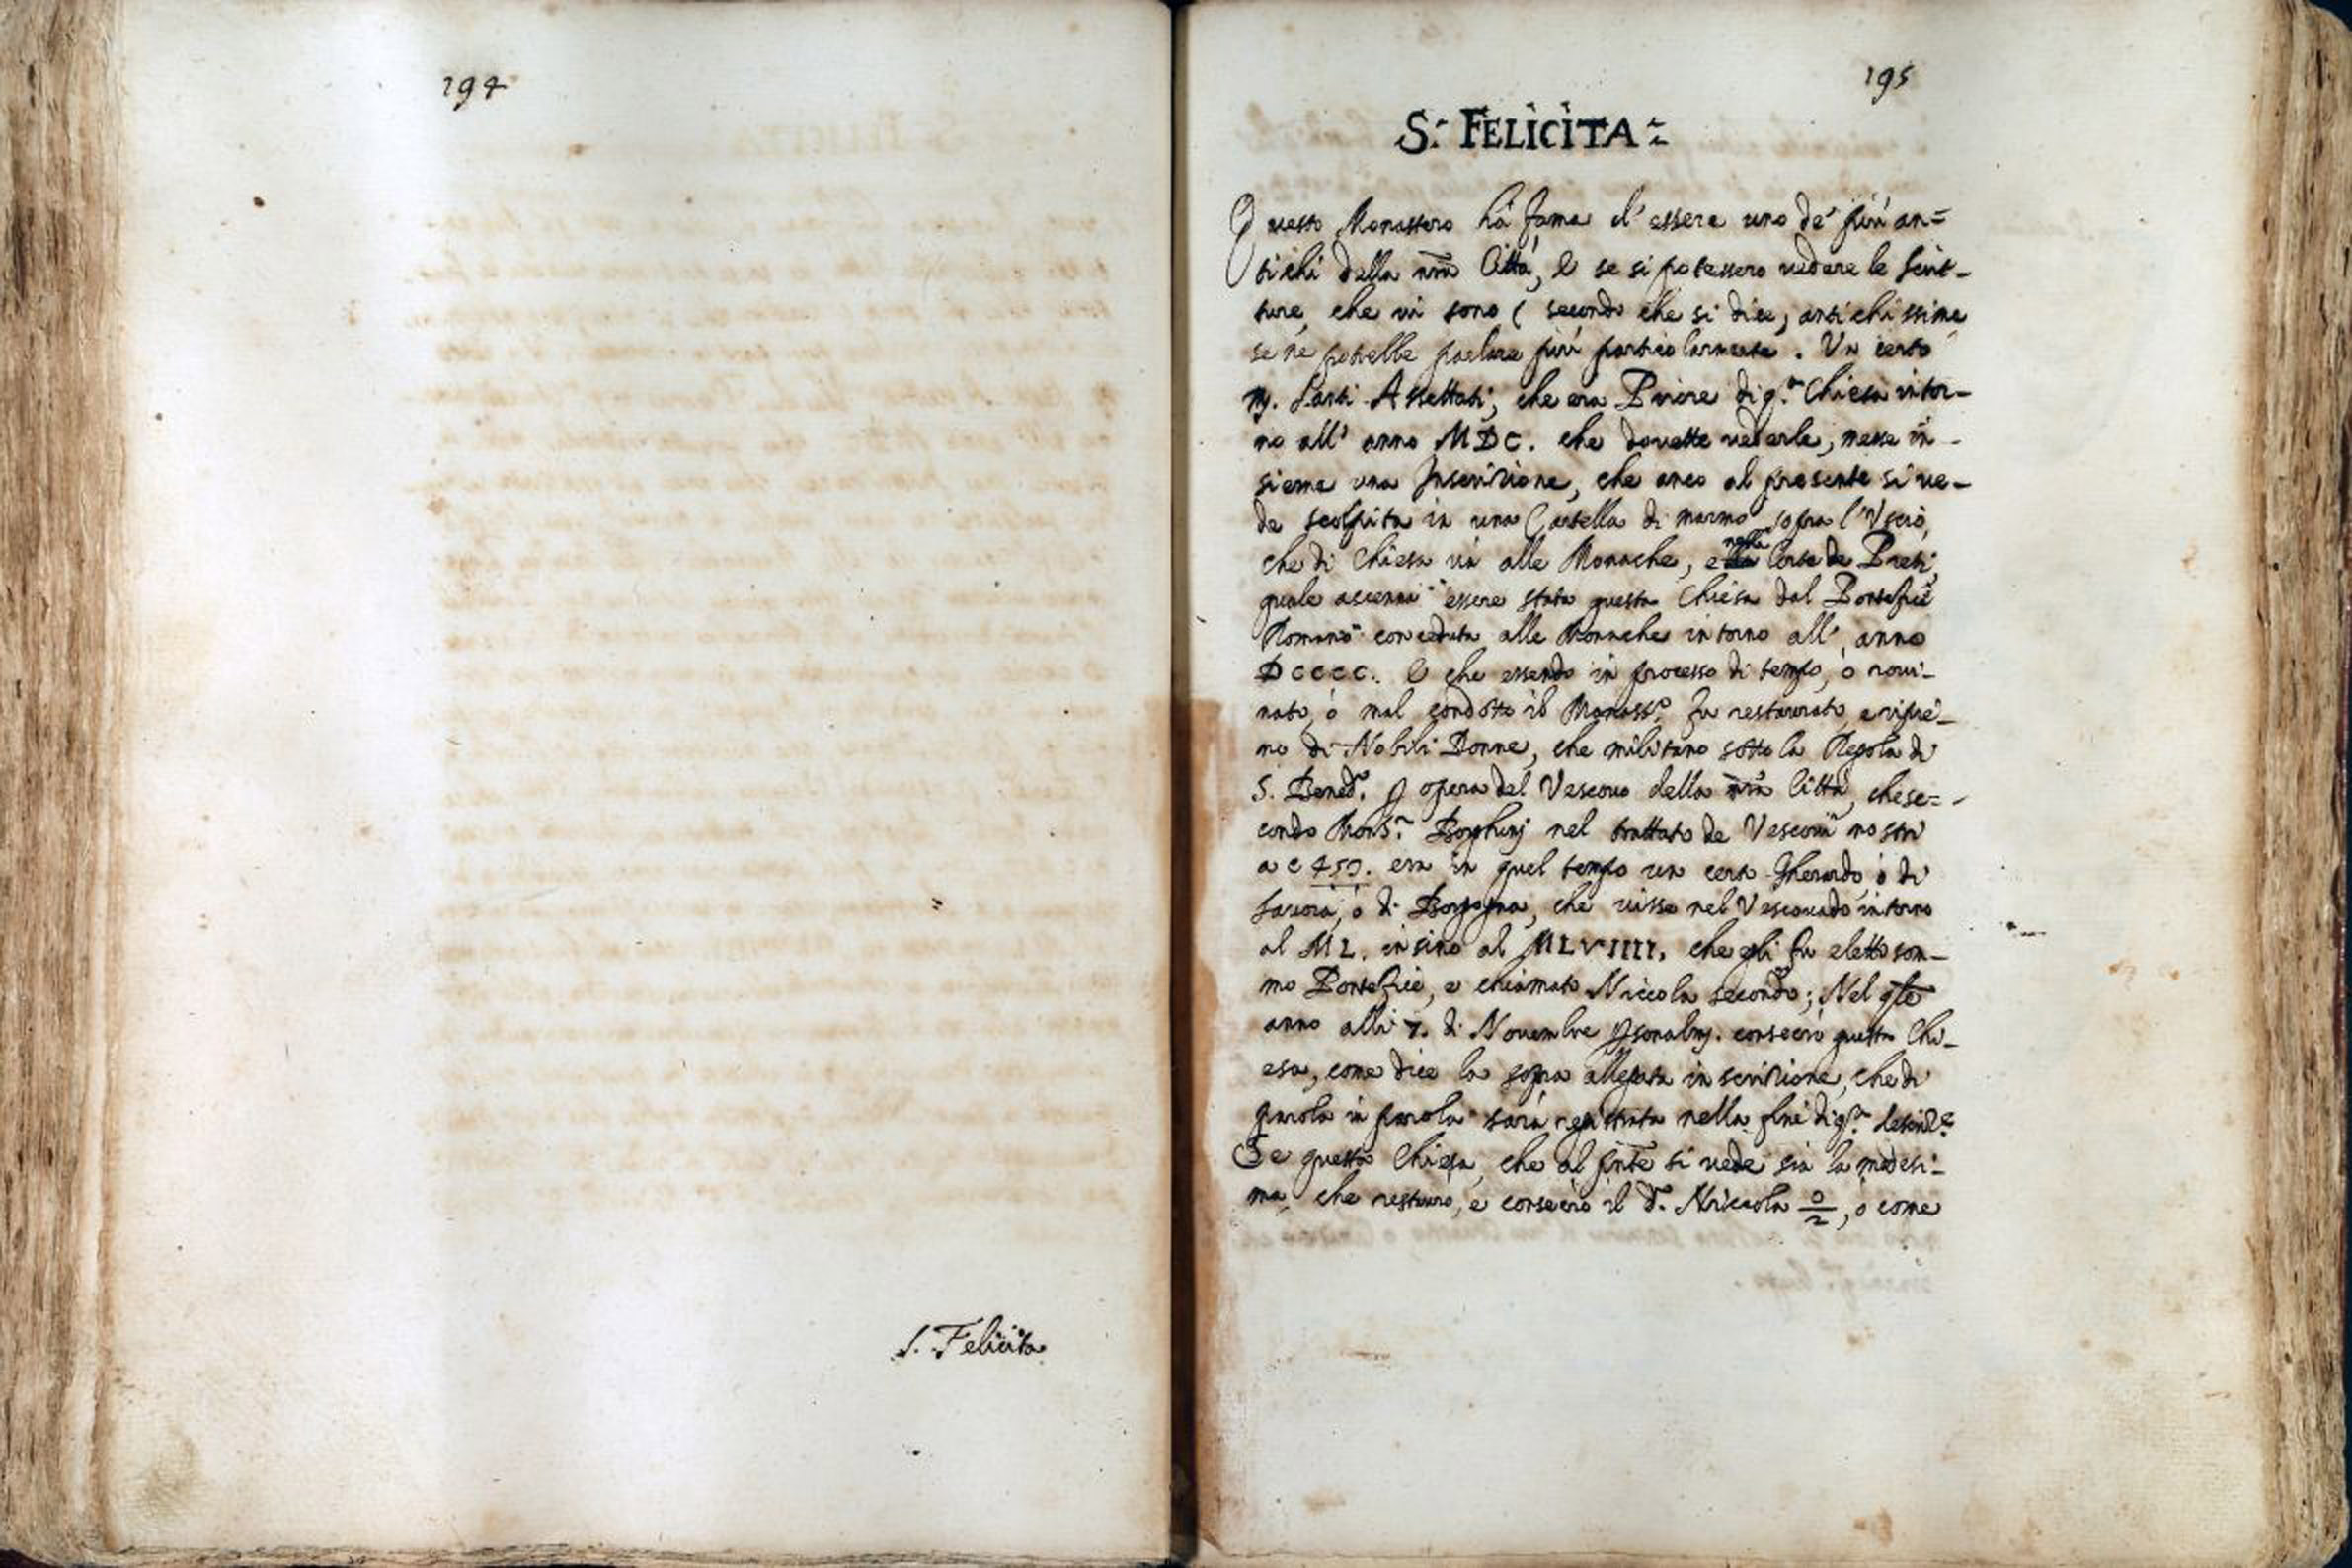 194
S. Felicita
195
S. FELICITA
Questo Monastero hà fama d'essere uno de' più an=
tichi della nr̃a Città, E se si potessero vedere le Scrit-
ture, che vi sono (secondo che si dice) antichissime
se ne potrebbe parlare più particolarmente. Un certo
M. Santi Assettati, che era Priore di q.ta Chiesa intor-
no all' anno MDC. che dovette vederle, messe in-
sieme una Inscrizzione, che anco al presente si ve-
de scolpita in una Cartella di marmo sopra l'Uscio,
che di Chiesa và alle Monache, e nella Corte de Preti,
quale accenna essere stata questa Chiesa dal Pontefice
Romano conceduta alle Monache intorno all' anno
DCCCC. E che essendo in processo di tempo, ò rovi-
nato, ò mal condotto il Monast.o fu restaurato, e ripie-
no di Nobili Donne, che militano sotto la Regola di
S. Bened.o p opera del Vescovo della nr̃a Città, che se=
condo Mons.r Borghinj nel trattato de Vescovi nostri
a c 459. era in quel tempo un certo Gherardo ò di
Savoia, ò di Borgogna, che visse nel Vescovado intorno
al ML. insino al MLVIIII. che egli fu eletto som-
mo Pontefice, e chiamato Niccola secondo; Nel qle
anno alli 7. di Novembre psonalm. consecrò questa Chi-
esa, come dice la sopra allegata inscrizzione, che di
parola in parola sarà registrata nella fine di q.sta descriz.e
Se questa Chiesa, che al pñte si vede sia la medesi-
ma che restaurò, e consecrò il d. Niccola 2o, ò come